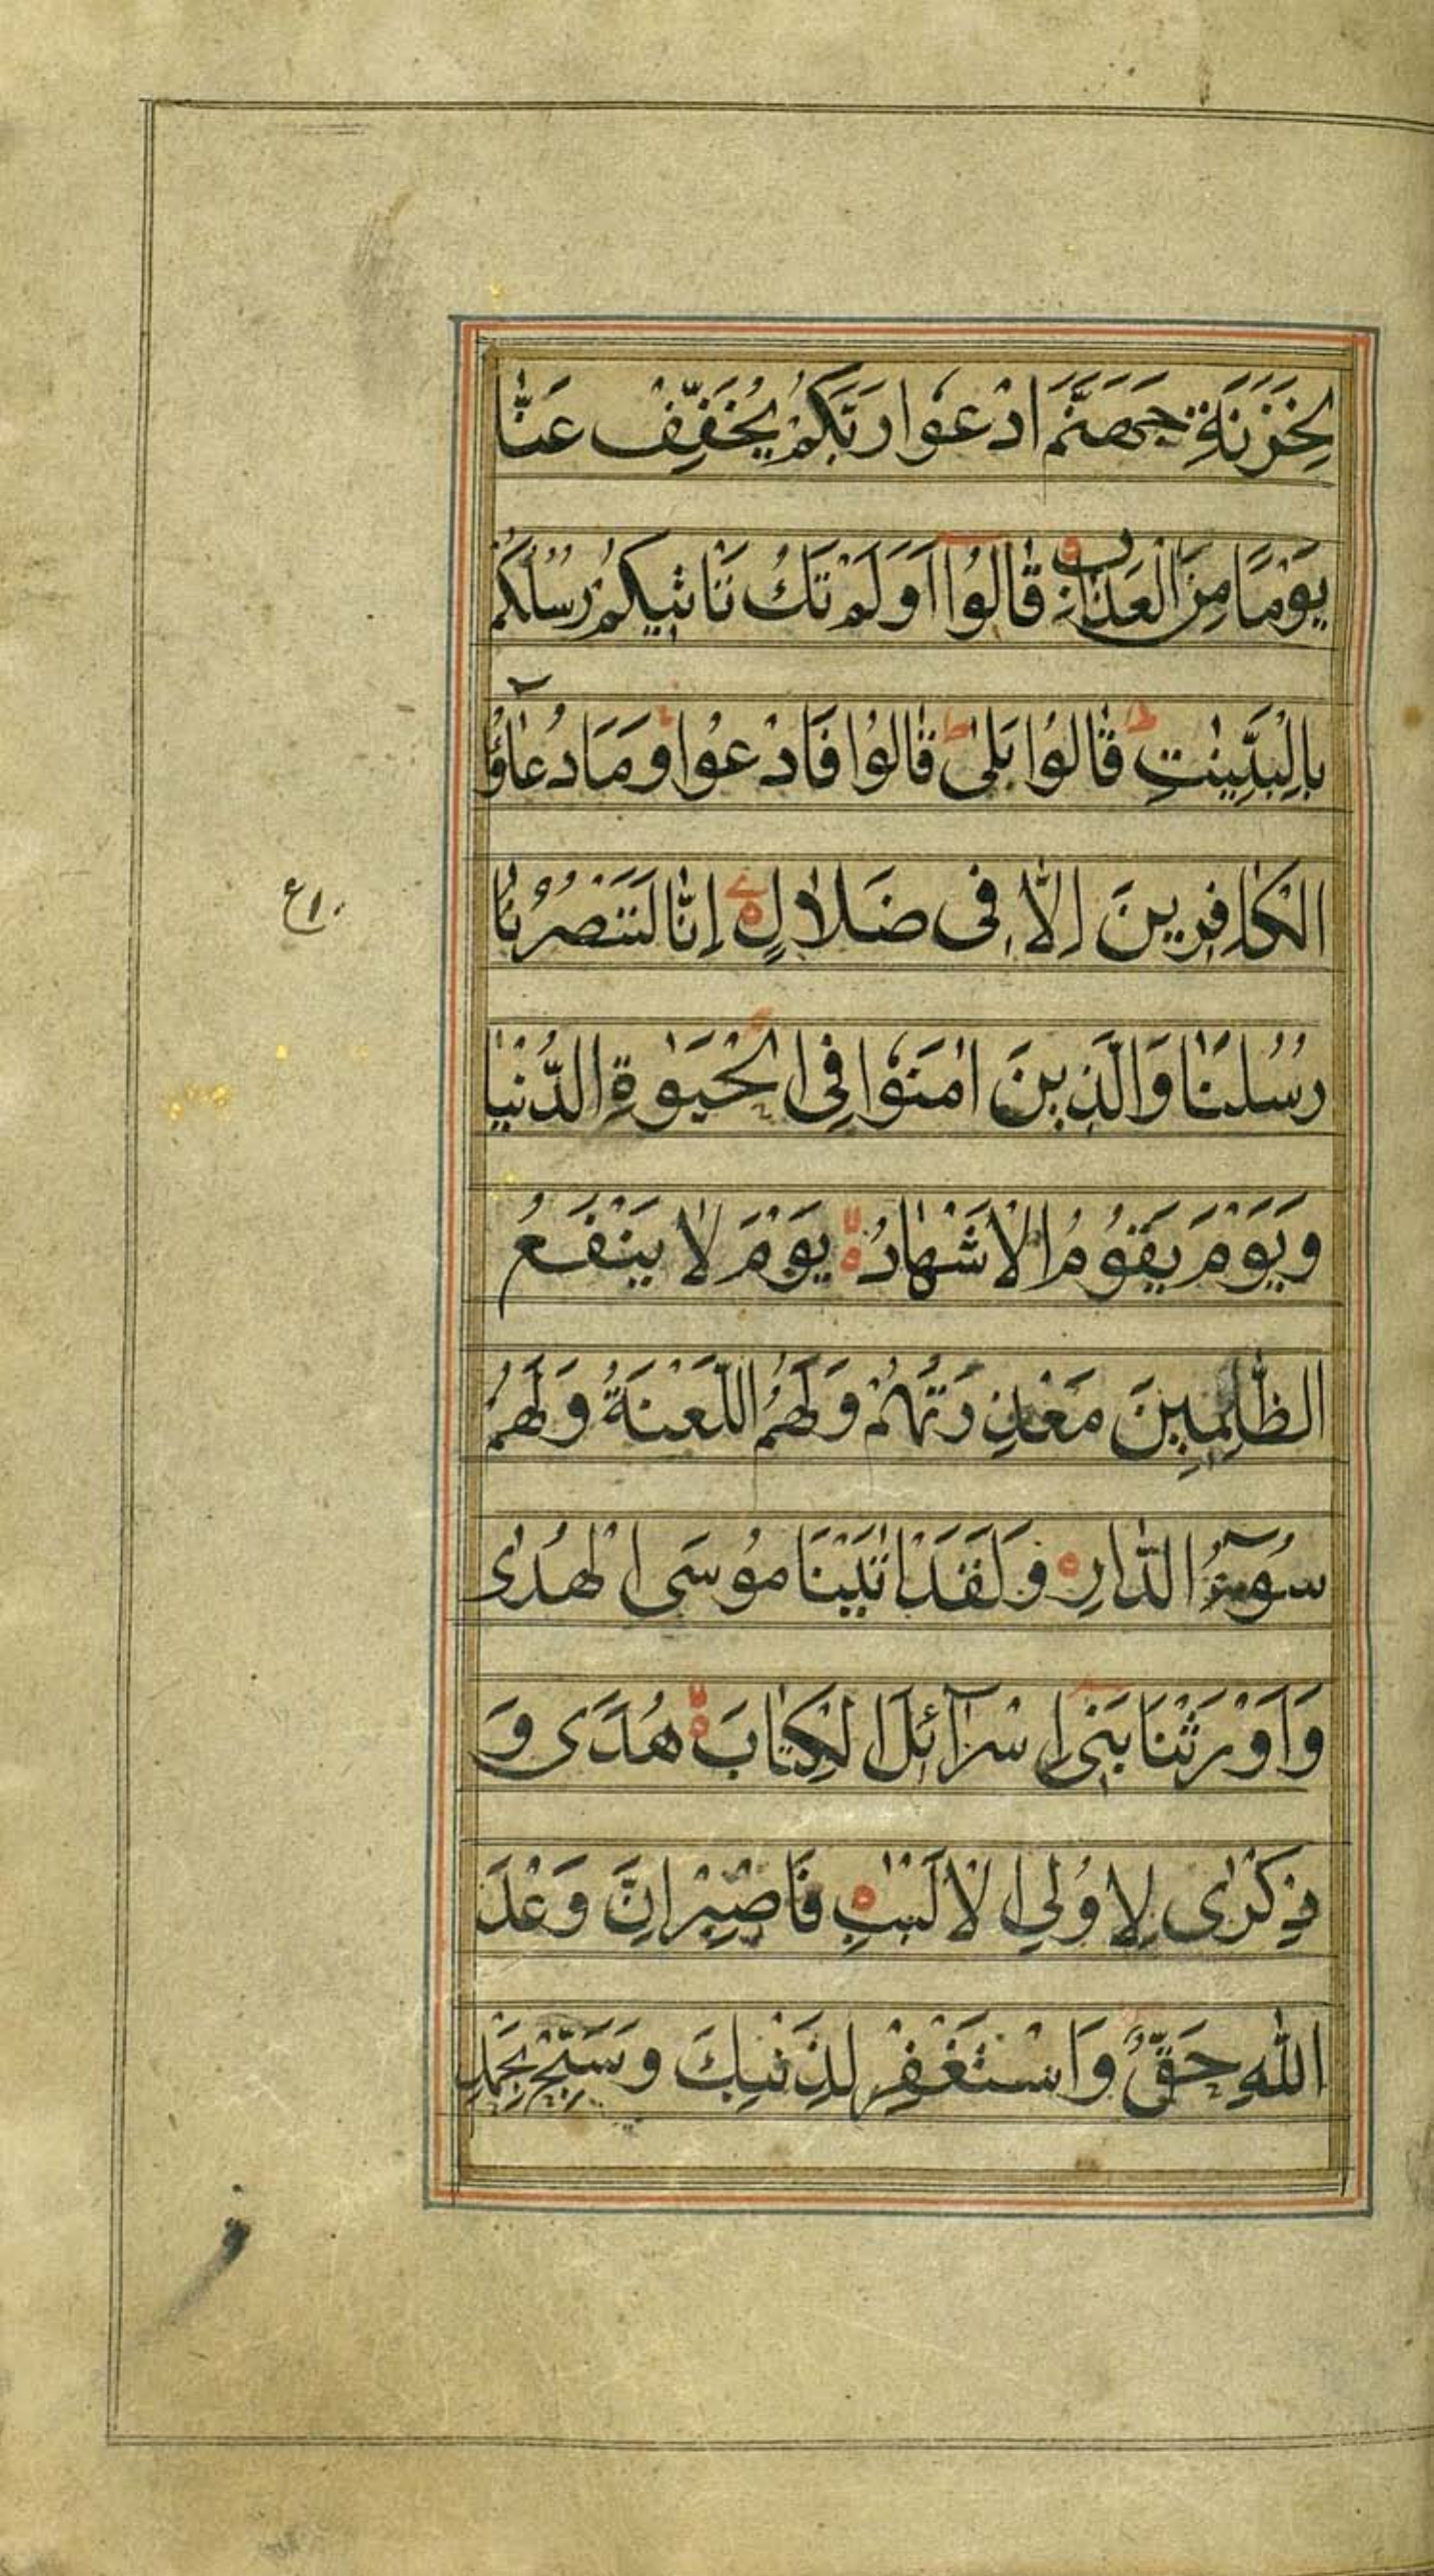 لِخَزَنَةِ جَهَنَّمَ ادْعُوا رَبَّكُمْ يُخَفِّفْ عَنَّا
يَوْمًا مِنَ الْعَذَابِ قَالُوا اَوَلَمْ تَكُ تَاْتِيكُمْ رُسُلُكُمْ
بِالْبَيِّنٰتِ قَالُوا بَلٰى قَالُوا فَادْعُوا وَمَا دُعَاؤُا
الْكَافِرِينَ اِلَّا فِى ضَلَالٍ اِنَّا لَنَنْصُرُ نَا
رُسُلَنَا وَالَّذِينَ اٰمَنُوا فِى الْحَيٰوةِ الدُّنْيَا
وَيَوْمَ يَقُومُ الْاَشْهَادُ يَوْمَ لَا يَنْفَعُ
الظَّالِمِينَ مَعْذِرَتُهُمْ وَلَهُمُ اللَّعْنَةُ وَلَهُمْ
سُوٓءُ الدَّارِ وَلَقَدْ اٰتَيْنَا مُوسَى الْهُدٰى
وَاَوْرَثْنَا بَنِى اِسْرَآئِلَ الْكِتَابَ هُدًى وَ
ذِكْرٰى لِاُولِى الْاَلْبٰبِ فَاصْبِرْ اِنَّ وَعْدَ
اللّٰهِ حَقٌّ وَاسْتَغْفِرْ لِذَنْبِكَ وَسَبِّحْ بِحَمْدِ